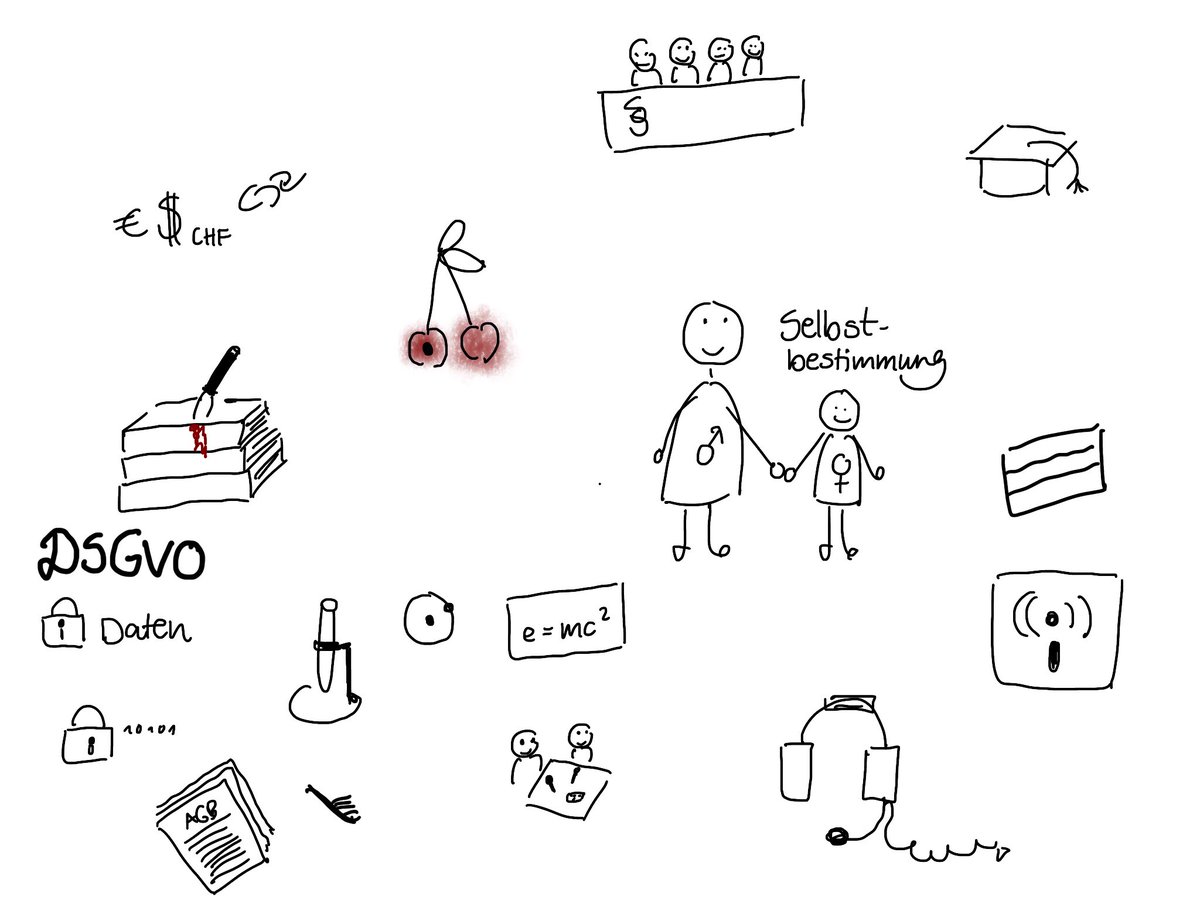 §
€ $ CHF
Selbst-
bestimmung
♂
♀
DSGVO
Daten
e=mc²
10101
AGB